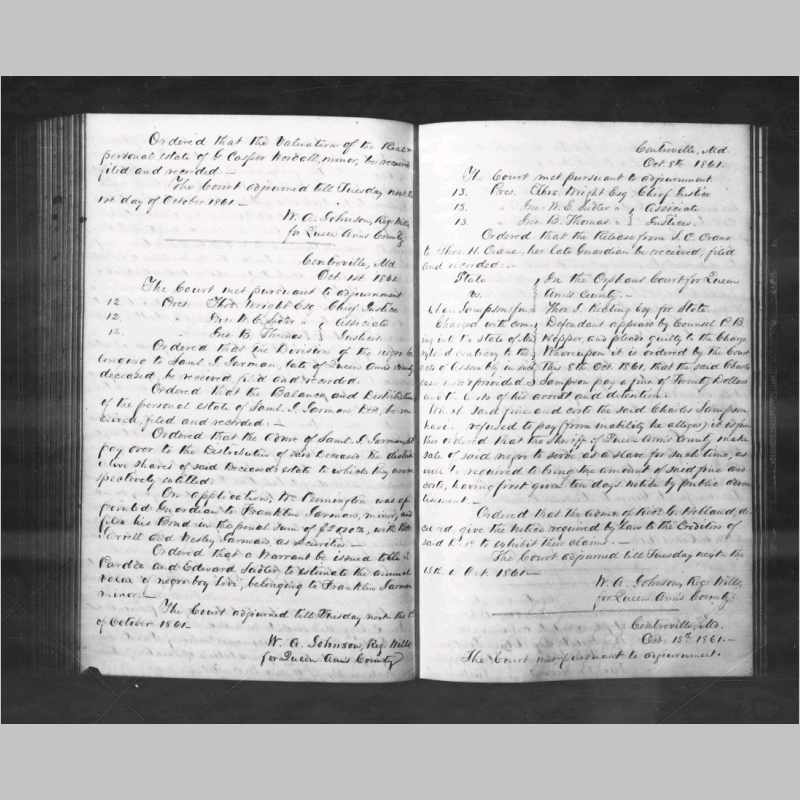 Ordered that the Valuation of the Real &
personal estate of G Casper Wordall, minor, be received
filed and recorded. —
The Court adjourned till Tuesday next
1st day of October 1861 —
W. A. Johnson, Reg. Wills
for Queen Anns County
Centreville, Md
Oct 1st 1861
The Court met pursuant to adjournment
12 Pres. Thos. Wright Esq Chief Justice
12. " Geo. W. E. " } Associate
12. " Geo B. Thomas " } Justices
Ordered that the Division of the negroes
belonging to Saml. J. Jarman, late of Queen Anns County
deceased, be received, filed and recorded.
Ordered that the Balance, and Distribution
of the personal estate of Saml. J. Jarman be re
ceived, filed and recorded. —
Ordered that the of Saml. J. Jarman
pay over to the Distributees of said Deceased the distrib
utive shares of said Deceaseds estate to which they are re
spectively entitled.
On application, Wm Pennington was ap
pointed Guardian to Franklin Jarman, minor, and
files his Bond in the penal sum of with
and Wesley Jarman as Securities. —
Ordered that a Warrant be issued to
Pardee and Edward to estimate the annual
value of negro boy Levi, belonging to Franklin Jarman
minor. —
The Court adjourned till Tuesday next the 8
of October 1861
W. A. Johnson, Reg. Wills
for Queen Anns County
Centreville, Md
Oct 8th 1861.
The Court met pursuant to adjournment
13. Pres. Thos. Wright Esq Chief Justice
13. " Geo. W. E. " } Associate
13. " Geo. B. Thomas " } Justices.
Ordered that the Release from J. O.
to Thos. H. her late Guardian be received, filed
and recorded. —
State } In the Orphans Court for Queen
vs. } Anns County. —
Sampson free } Thos J. Keating Esq. for State
Charged with com } Defendant appears by Counsel P. B.
ing into the State of } Hopper, and pleads guilty to the Charge
contrary to the } Whereupon it is ordered by the Court
acts of Assembly in such } This 8th Oct. 1861, that the said Charles
case made & provided } Sampson pay a fine of Twenty Dollars
and the costs of his arrest and detention.
Which said fine and costs the said Charles Sampson
have refused to pay (from inability he alleges) it is fur
ther ordered that the Sheriff of Queen Anns County make
sale of said negro to serve as a slave for such time, as
will be required to bring the amount of said fine and
costs, having first given ten days notice by public adver
tisement. —
Ordered that the of Holland, de
ceased, give the Notice required by Law to the Creditors of
said to exhibit their claims. —
The Court adjourned till Tuesday next the
15th of Oct. 1861 —
W. A. Johnson, Reg. Wills
for Queen Anns County.
Centreville, Md.
Oct. 15th 1861. —
The Court met pursuant to adjournment.